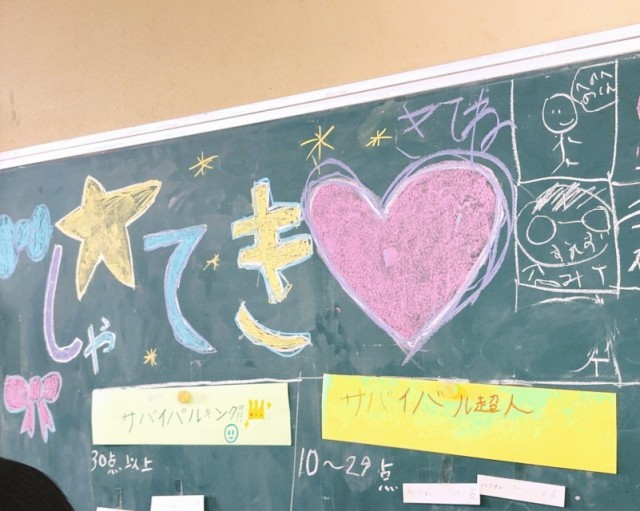 きてね
しゃてき
へのへの
サバイバルキング!!
サバイバル超人
30点以上
10～29点